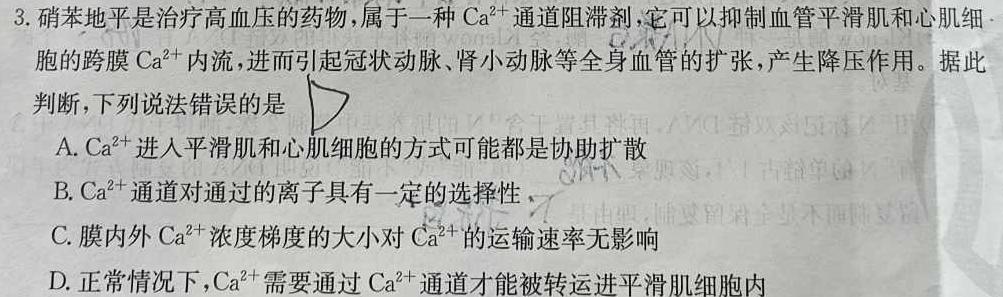 3. 硝苯地平是治疗高血压的药物,属于一种 Ca²⁺通道阻滞剂,它可以抑制血管平滑肌和心肌细
胞的跨膜 Ca²⁺内流,进而引起冠状动脉、肾小动脉等全身血管的扩张,产生降压作用。据此
判断,下列说法错误的是 D
A. Ca²⁺进入平滑肌和心肌细胞的方式可能都是协助扩散
B. Ca²⁺通道对通过的离子具有一定的选择性
C. 膜内外 Ca²⁺浓度梯度的大小对 Ca²⁺的运输速率无影响
D. 正常情况下,Ca²⁺需要通过 Ca²⁺通道才能被转运进平滑肌细胞内